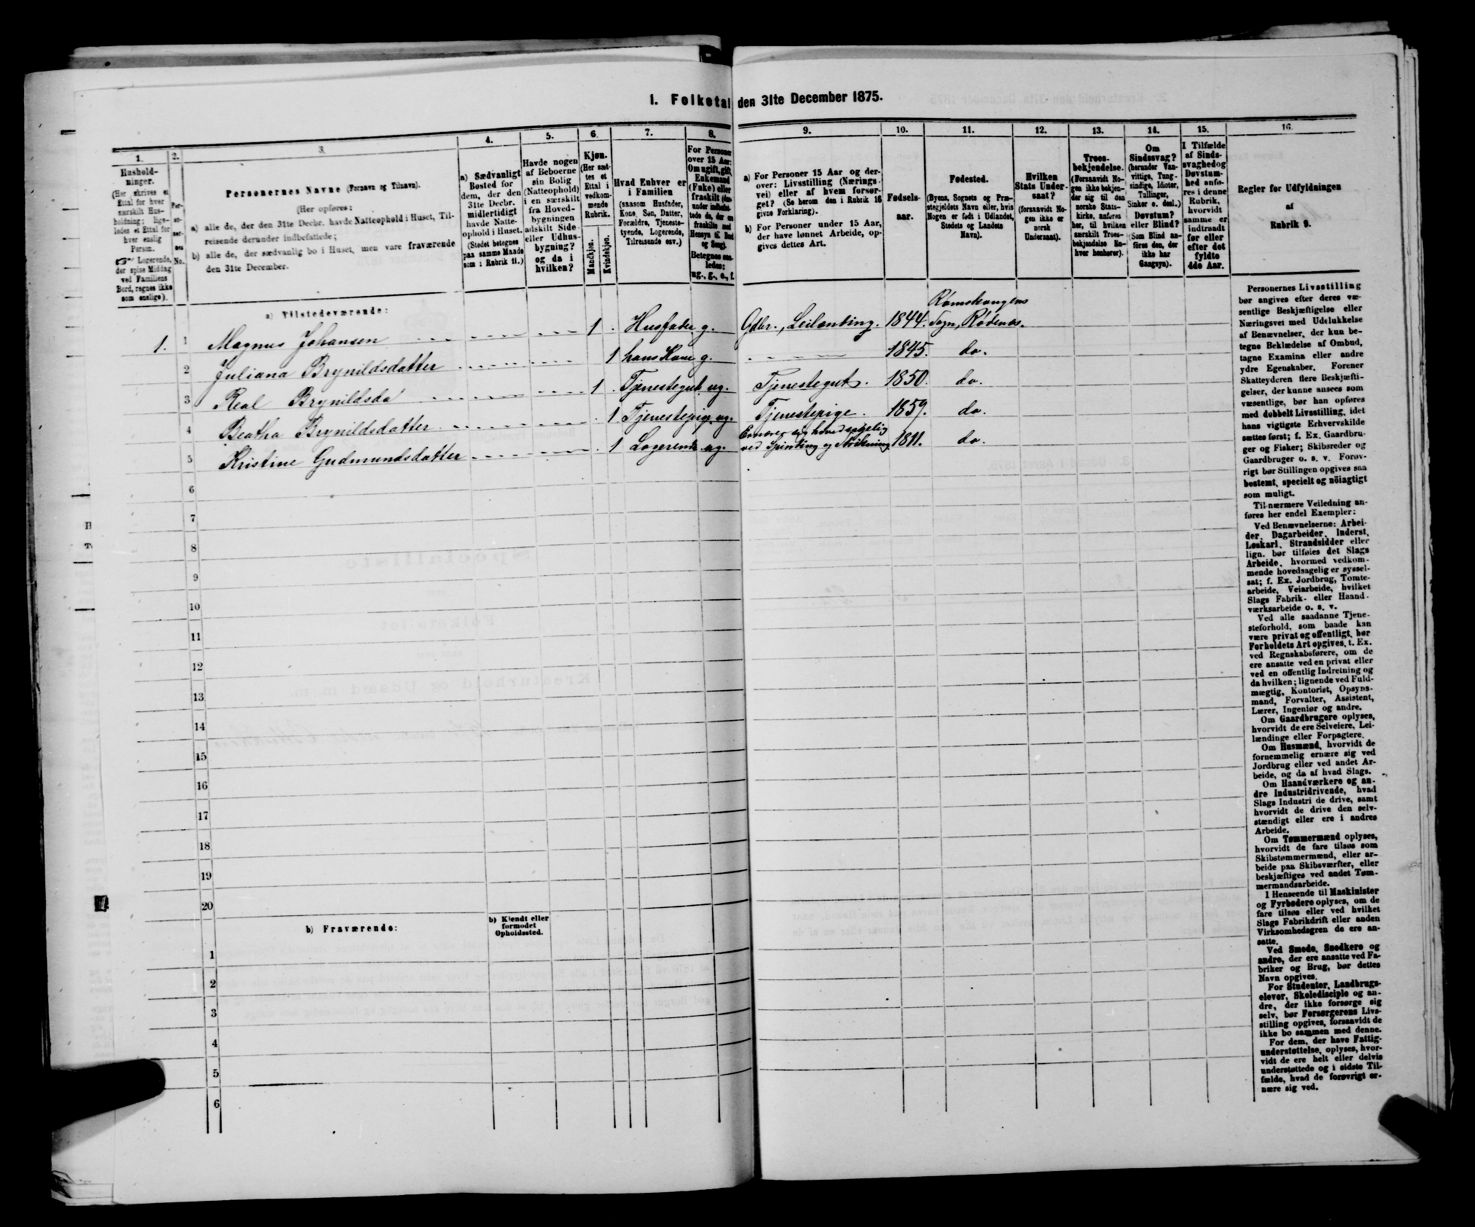 1. Folketal den 31te December 1875.
1. 2. 3. 4. 5. 6. 7. 8. 9. 10. 11. 12. 13. 14. 15. 16.
Personernes Navne (Fornavn og Tilnavn).
(Her opføres:
a) alle de, der den 31te Decbr. havde Natteophold i Huset, Tilreisende derunder indbefattede;
b) alle de, der sædvanlig bo i Huset, men vare fraværende den 31te December.
a) Sædvanligt Bosted for dem, der den 31te Decbr. midlertidigt havde Natteophold i Huset.
(Stedet betegnes paa samme Maade som i Rubrik 11.)
Havde nogen af Beboerne sin Bolig (Natteophold) i en særskilt fra Hovedbygningen adskilt Side eller Udhusbygning? og da i hvilken?
Kjøn.
(Her sættes et Ettal i vedkommende Rubrik.
Mandkjøn. Kvindekjøn.
Hvad Enhver er i Familien
(saasom Husfader, Kone, Søn, Datter, Forældre, Tjenestetyende, Logerende, Tilreisende osv.)
a) For Personer 15 Aar og derover: Livsstilling (Næringsvei) eller af hvem forsørget? (Se herom den i Rubrik 16 givne Forklaring).
b) For Personer under 15 Aar, der have lønnet Arbeide, opgives dettes Art.
Fødselsaar.
Fødested.
(Byens, Sognets og Præstegjeldets Navn eller, hvis Nogen er født i Udlandet, Stedets og Landets Navn).
Hvilken Stats Undersaat?
(forsaavidt Nogen ikke er norsk Undersaat).
Troesbekjendelse.
(Forsaavidt Nogen ikke bekjender sig til den norske Statskirke, anføres her, til hvilken særskilt Troesbekjendelse Enhver henhører).
Om Sindssvag? (herunder Vanvittige, Tungsindige, Idioter, Tullinger, Sinker o. desl.)
Døvstum? eller Blind?
(Som Blind anføres den, der ikke har Gangsyn).
I Tilfælde af Sindssvaghed og Døvstumhed anføres i denne Rubrik, hvorvidt samme er indtraadt før eller efter det fyldte 4de Aar.
Regler for Udfyldningen
af
Rubrik 9.
a) Tilstedeværende:
1. 1 Magnus Johansen 1. Husfader g. Gdbr., Leilænding. 1844. Rømskougens Sogn, Rødenæs.
2 Juliana Brynildsdatter 1 hans Kone g. 1845. do.
3 Real Brynildsda 1. Tjenestegut ug. Tjenestegut. 1850. do.
4 Beatha Brynildsdatter 1 Tjenestepige ug. Tjenestepige. 1859. do.
5 Kristine Gudmundsdatter 1 Logerende ug. Ernærer sig hovedsagelig
ved Spinding og Strikning 1811. do.
6
7
8
9
10
11
12
13
14
15
16
17
18
19
20
b) Fraværende:
b) Kjendt eller formodet Opholdssted.
1
2
3
4
5
6
Personernes Livsstilling
bør angives efter deres væ-
sentlige Beskjæftigelse eller
Næringsvei med Udelukkelse
af Benævnelser, der kun be-
tegne Beklædelse af Ombud,
tagne Examina eller andre
ydre Egenskaber. Forener
Skatteyderen flere Beskjæfti-
gelser, der kunne ansees som
væsentlige, bør han opføres
med dobbelt Livsstilling, idet
hans vigtigste Erhvervskilde
sættes først; f. Ex. Gaardbru-
ger og Fisker; Skibsreder og
Gaardbruger o. s. v. Forøv-
rigt bør Stillingen opgives saa
bestemt, specielt og nöiagtigt
som muligt.
Til nærmere Veiledning an-
føres her endel Exempler:
Ved Benævnelserne: Arbei-
der, Dagarbeider, Inderst,
Løskarl, Strandsidder eller
lign. bør tilføies det Slags
Arbeide, hvormed vedkom-
mende hovedsagelig er syssel-
sat; f. Ex. Jordbrug, Tomte-
arbeide, Veiarbeide, hvilket
Slags Fabrik- eller Haand-
værksarbeide o. s. v.
Ved alle saadanne Tjene-
steforhold, som baade kan
være privat og offentligt, bør
Forholdets Art opgives, t. Ex.
ved Regnskabsførere, om de
ere ansatte ved en privat eller
ved en offentlig Indretning og
da hvilken; lignende ved Fuld-
mægtig, Kontorist, Opsyns-
mand, Forvalter, Assistent,
Lærer, Ingeniør og andre.
Om Gaardbrugere oplyses,
hvorvidt de ere Selveiere, Lei-
lændinge eller Forpagtere.
Om Husmænd, hvorvidt de
fornemmelig ernære sig ved
Jordbrug eller ved andet Ar-
beide, og da af hvad Slags.
Om Haandværkere og an-
dre Industridrivende, hvad
Slags Industri de drive, samt
hvorvidt de drive den selv-
stændigt eller ere i andres
Arbeide.
Om Tømmermænd oplyses,
hvorvidt de fare tilsøs som
Skibstømmermænd, eller ar-
beide paa Skibsværfter, eller
beskjæftiges ved andet Tøm-
mermandsarbeide.
I Henseende til Maskinister
og Fyrbødere oplyses, om de
fare tilsøs eller ved hvilket
Slags Fabrikdrift eller anden
Virksomhedsgren de ere an-
satte.
Ved Smede, Snedkere og
andre, der ere ansatte ved Fa-
briker og Brug, bør dettes
Navn opgives.
For Studenter, Landbrugs-
elever, Skoledisciple og an-
dre, der ikke forsørge sig
selv, bør Forsørgerens Livs-
stilling opgives, forsaavidt de
ikke bo sammen med denne.
For dem, der have Fattig-
understøttelse, oplyses, hvor-
vidt de ere helt eller delvis
understøttede og i sidste Til-
fælde, hvad de forøvrigt er-
nære sig ved.